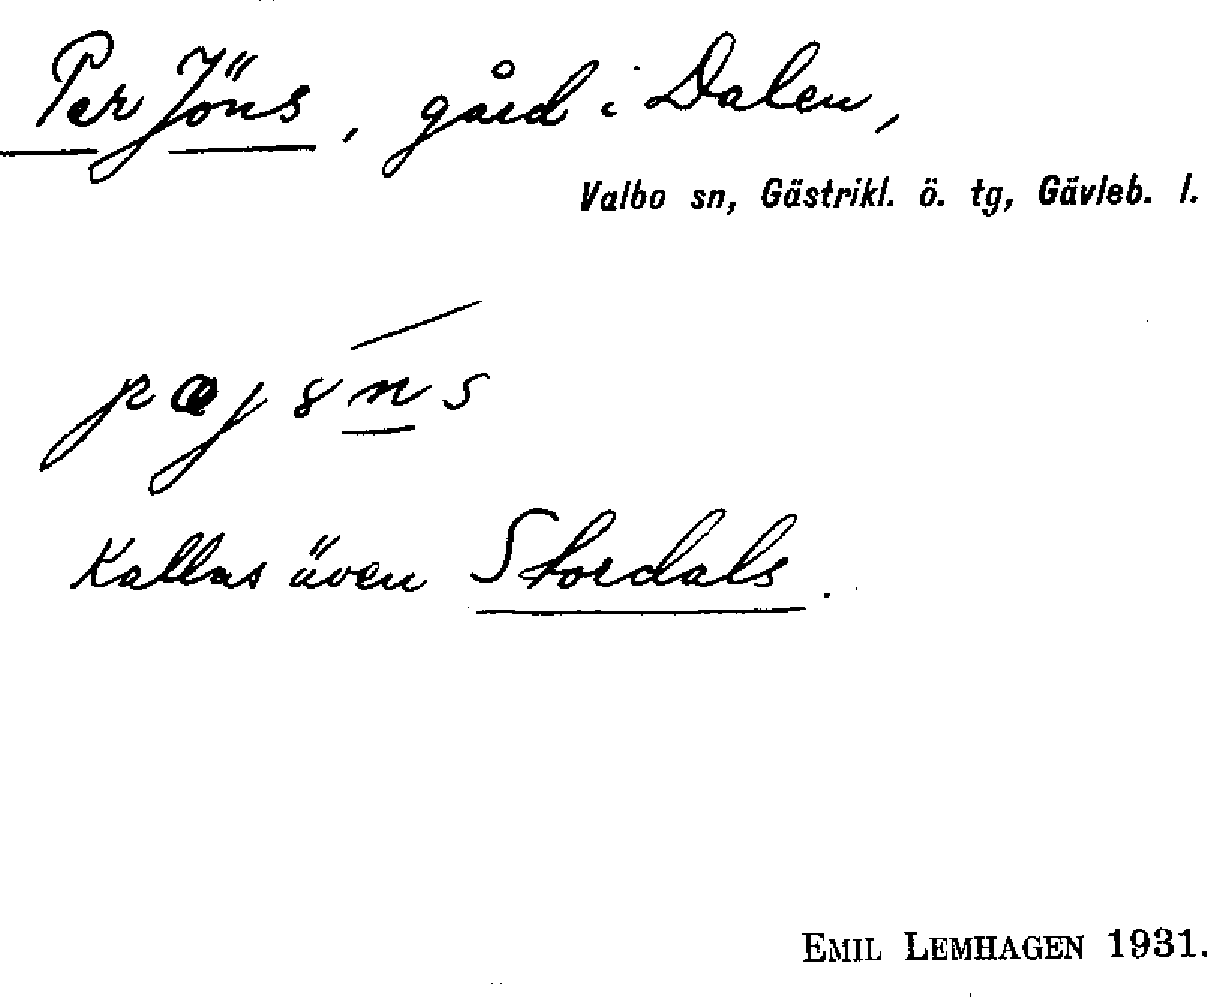 Per Jöns, gård i Dalen,
Valbo sn, Gästrikl. ö. tg, Gävleb. l.
pæjöns
Kallas även Stordals.
EMIL LEMHAGEN 1931.